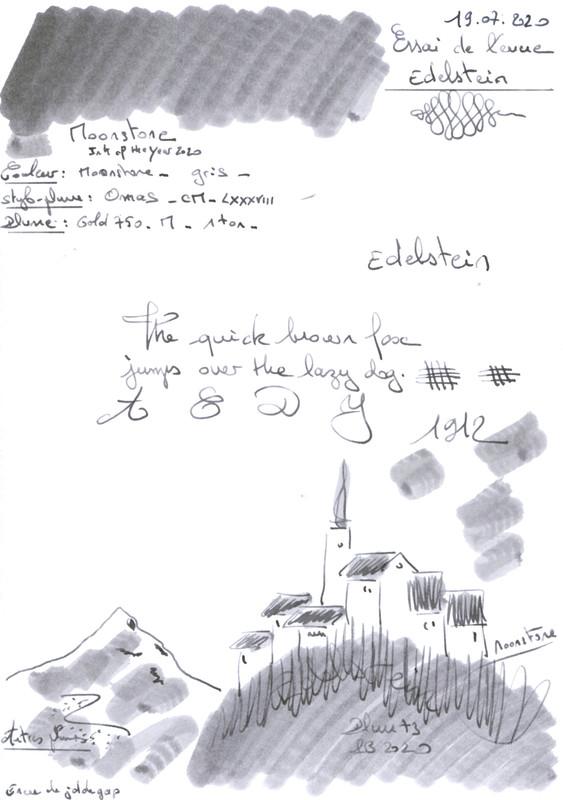 19.07.2020
Essai de l'encre
Edelstein
Moonstone
Ink of the Year 2020
Couleur: Moonstone - gris -
stylo-plume: Omas - CM - LXXXVIII
Plume: Gold 750 - M -
Edelstein
The quick brown fox
jumps over the lazy dog.
A E D Y
1912
Moonstone
Edelstein
2020
Encre de